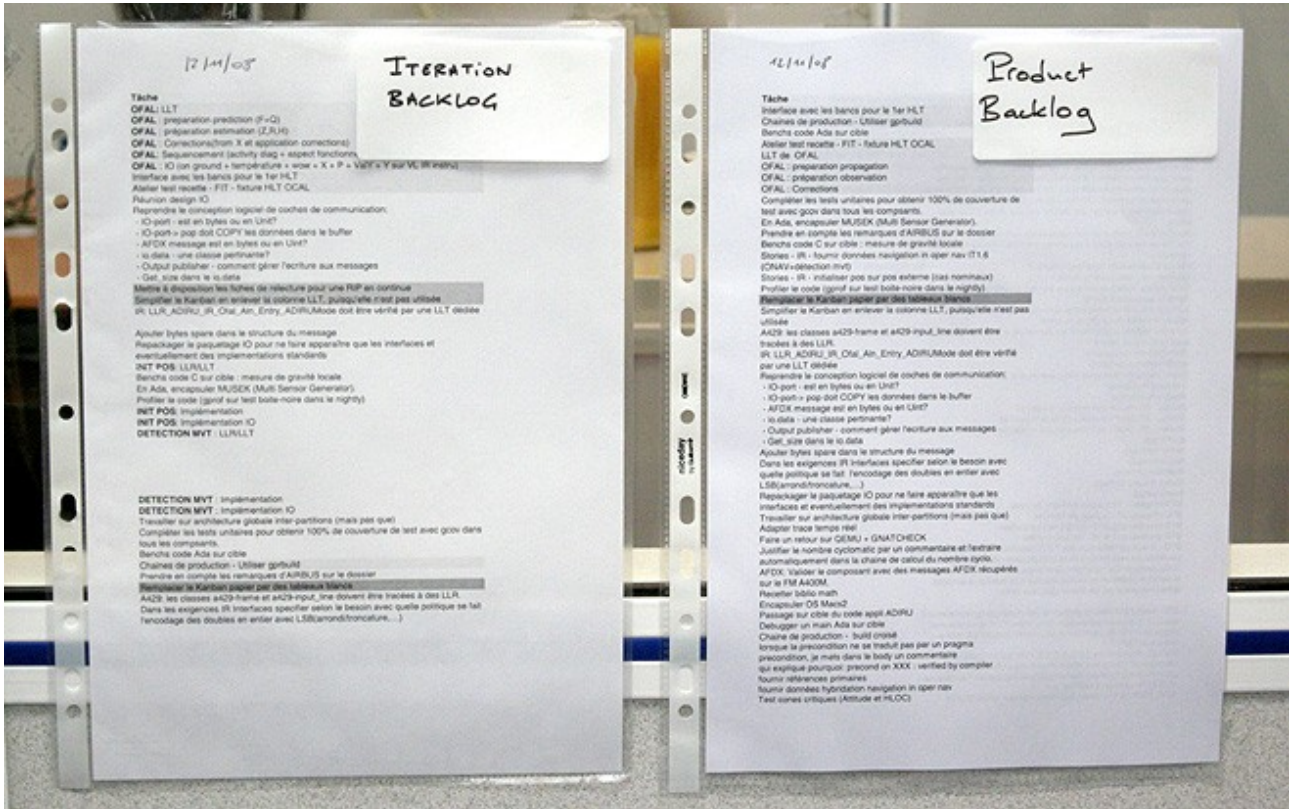 12/11/08
ITERATION
BACKLOG
Tâche
OFAL: LLT
OFAL : preparation prediction (F+Q)
OFAL : préparation estimation (Z,R,H)
OFAL : Corrections(from X et application corrections)
OFAL: Sequencement (activity diag + aspect fonctionne
OFAL : IO (on ground + température + wow + X + P + ValY + Y sur VL IR instru)
Interface avec les bancs pour le 1er HLT
Atelier test recette - FIT - fixture HLT OCAL
Réunion design IO
Reprendre le conception logiciel de coches de communication:
- IO-port - est en bytes ou en Unit?
- IO-port-> pop doit COPY les données dans le buffer
- AFDX message est en bytes ou en Uint?
- io.data - une classe pertinante?
- Output publisher - comment gérer l'ecriture aux messages
- Get_size dans le io.data
Mettre à disposition les fiches de relecture pour une RIP en continue
Simplifier le Kanban en enlever la colonne LLT, puisqu'elle n'est pas utilisée
IR: LLR_ADIRU_IR_Ofal_Ain_Entry_ADIRUMode doit être vérifié par une LLT dédiée
Ajouter bytes spare dans le structure du message
Repackager le paquetage IO pour ne faire apparaître que les interfaces et
eventuellement des implementations standards
INIT POS: LLR/LLT
Benchs code C sur cible : mesure de gravité locale
En Ada, encapsuler MUSEK (Multi Sensor Generator).
Profiler le code (gprof sur test boite-noire dans le nightly)
INIT POS: Implémentation
INIT POS: Implémentation IO
DETECTION MVT : LLR/LLT
DETECTION MVT : Implémentation
DETECTION MVT : Implémentation IO
Travailler sur architecture globale inter-partitions (mais pas que)
Compléter les tests unitaires pour obtenir 100% de couverture de test avec gcov dans
tous les compsants.
Benchs code Ada sur cible
Chaines de production - Utiliser gprbuild
Prendre en compte les remarques d'AIRBUS sur le dossier
Remplacer le Kanban papier par des tableaux blancs
A429: les classes a429-frame et a429-input_line doivent être tracées à des LLR.
Dans les exigences IR Interfaces specifier selon le besoin avec quelle politique se fait
l'encodage des doubles en entier avec LSB(arrondi/troncature,...)
12/11/08
Product
Backlog
Tâche
Interface avec les bancs pour le 1er HLT
Chaines de production - Utiliser gprbuild
Benchs code Ada sur cible
Atelier test recette - FIT - fixture HLT OCAL
LLT de OFAL
OFAL : preparation propagation
OFAL : préparation observation
OFAL : Corrections
Compléter les tests unitaires pour obtenir 100% de couverture de
test avec gcov dans tous les compsants.
En Ada, encapsuler MUSEK (Multi Sensor Generator).
Prendre en compte les remarques d'AIRBUS sur le dossier
Benchs code C sur cible : mesure de gravité locale
Stories - IR - fournir données navigation in oper nav IT1.6
(ONAV+détection mvt)
Stories - IR - initialiser pos sur pos externe (cas nominaux)
Profiler le code (gprof sur test boite-noire dans le nightly)
Remplacer le Kanban papier par des tableaux blancs
Simplifier le Kanban en enlever la colonne LLT, puisqu'elle n'est pas
utilisée
A429: les classes a429-frame et a429-input_line doivent être
tracées à des LLR.
IR: LLR_ADIRU_IR_Ofal_Ain_Entry_ADIRUMode doit être vérifié
par une LLT dédiée
Reprendre le conception logiciel de coches de communication:
- IO-port - est en bytes ou en Unit?
- IO-port-> pop doit COPY les données dans le buffer
- AFDX message est en bytes ou en Uint?
- io.data - une classe pertinante?
- Output publisher - comment gérer l'ecriture aux messages
- Get_size dans le io.data
Ajouter bytes spare dans le structure du message
Dans les exigences IR Interfaces specifier selon le besoin avec
quelle politique se fait l'encodage des doubles en entier avec
LSB(arrondi/troncature,...)
Repackager le paquetage IO pour ne faire apparaître que les
interfaces et eventuellement des implementations standards
Travailler sur architecture globale inter-partitions (mais pas que)
Adapter trace temps réel
Faire un retour sur QEMU + GNATCHECK
Justifier le nombre cyclomatic par un commentaire et l'extraire
automatiquement dans la chaine de calcul du nombre cyclo.
AFDX: Valider le composant avec des messages AFDX récupérés
sur le FM A400M.
Recetter biblio math
Encapsuler OS Macs2
Passage sur cible du code appli ADIRU
Debugger un main Ada sur cible
Chaine de production - build croisé
lorsque la precondition ne se traduit pas par un pragma
precondition, je mets dans le body un commentaire
qui explique pourquoi: precond on XXX : verified by compiler
fournir références primaires
fournir données hybridation navigation in oper nav
Test zones critiques (Attitude et HLOC)
niceday